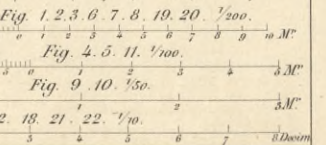 Fig. 1.2.3.6.7.8.19.20. 1/200.
0 1 2 3 4 5 6 7 8 9 10 Mes
Fig. 4.5.11. 1/100.
5 0 1 2 3 4 5 Mes
Fig. 9.10. 1/50.
1 2 3 Mes
2. 18. 21. 22. 1/10.
3 4 5 6 7 8 Decim